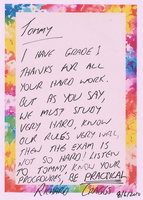 Tommy
I HAVE GRADE 1
THANKS FOR ALL
YOUR HARD WORK.
BUT AS YOU SAY,
WE MUST STUDY
VERY HARD, KNOW
OUR RULES VERY WELL,
THEN THE EXAM IS
NOT SO HARD! LISTEN
TO TOMMY KNOW YOUR
PROCEDURES, BE PRACTICAL
RICHARD